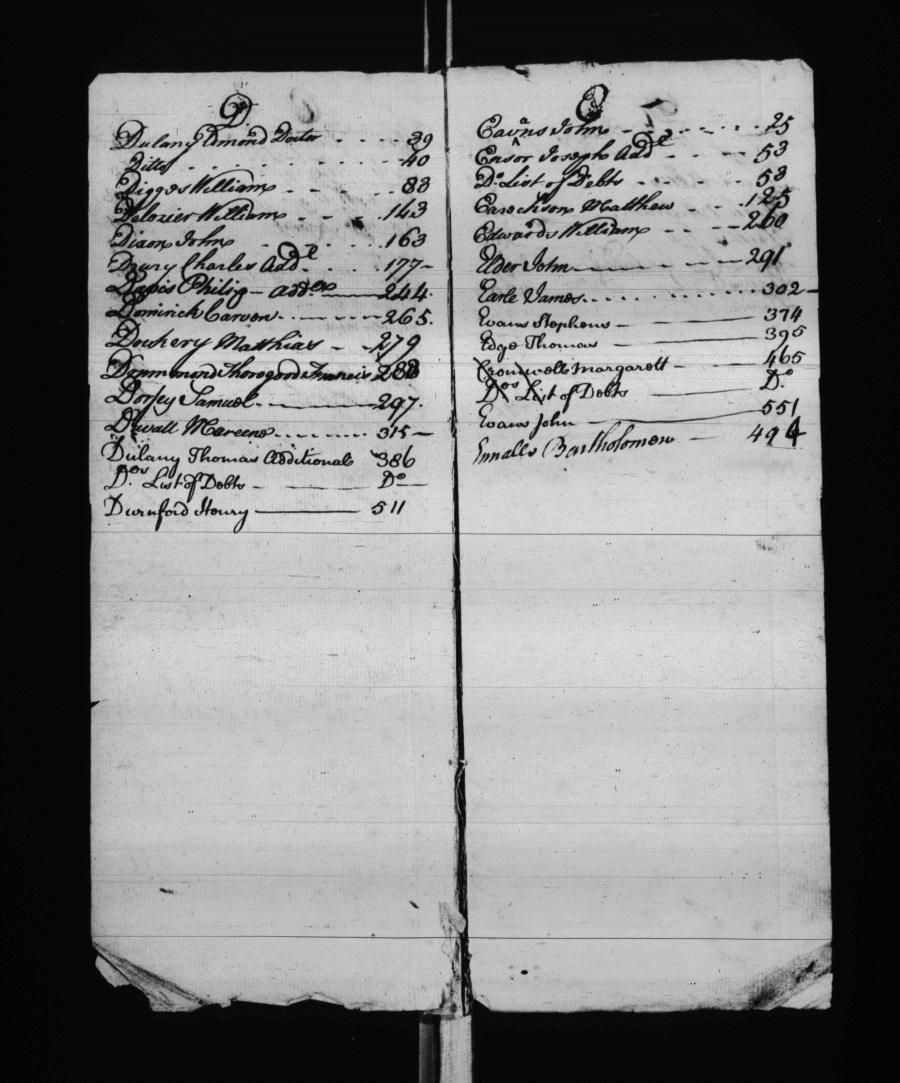 D
Dulany Edmond Doctor - - - - 39
Ditto - - - - - - 40
Digges William - - - - 83
Delozier William - - - 143
Dixon John - - - - 163
Drury Charles Add.l - - - 177 -
Davis Philip - add. 244.
Dominick Carven - - - - 265.
Dockery Matthias - - 279
Drummond Thorogood Francis 288
Dorsey Samuel - 297.
Duvall Mareene - - - - 315 -
Dulany Thomas Additional 386
D.os List of Debts - D.o
Durnford Henry 511
E
Eavans John - - - - 25
Ensor Joseph Add.l - - - 53
D.o List of Debts - - - 53
Matthew - - - 125
Edwards William - - - 260
Elder John 291
Earle James - - - - 302 -
Evans Stephens - 374
Edge Thomas - 395
Cromwell Margarett - 465
D.os List of Debts D.o
Evans John 551
Ennalls Bartholomew - 494